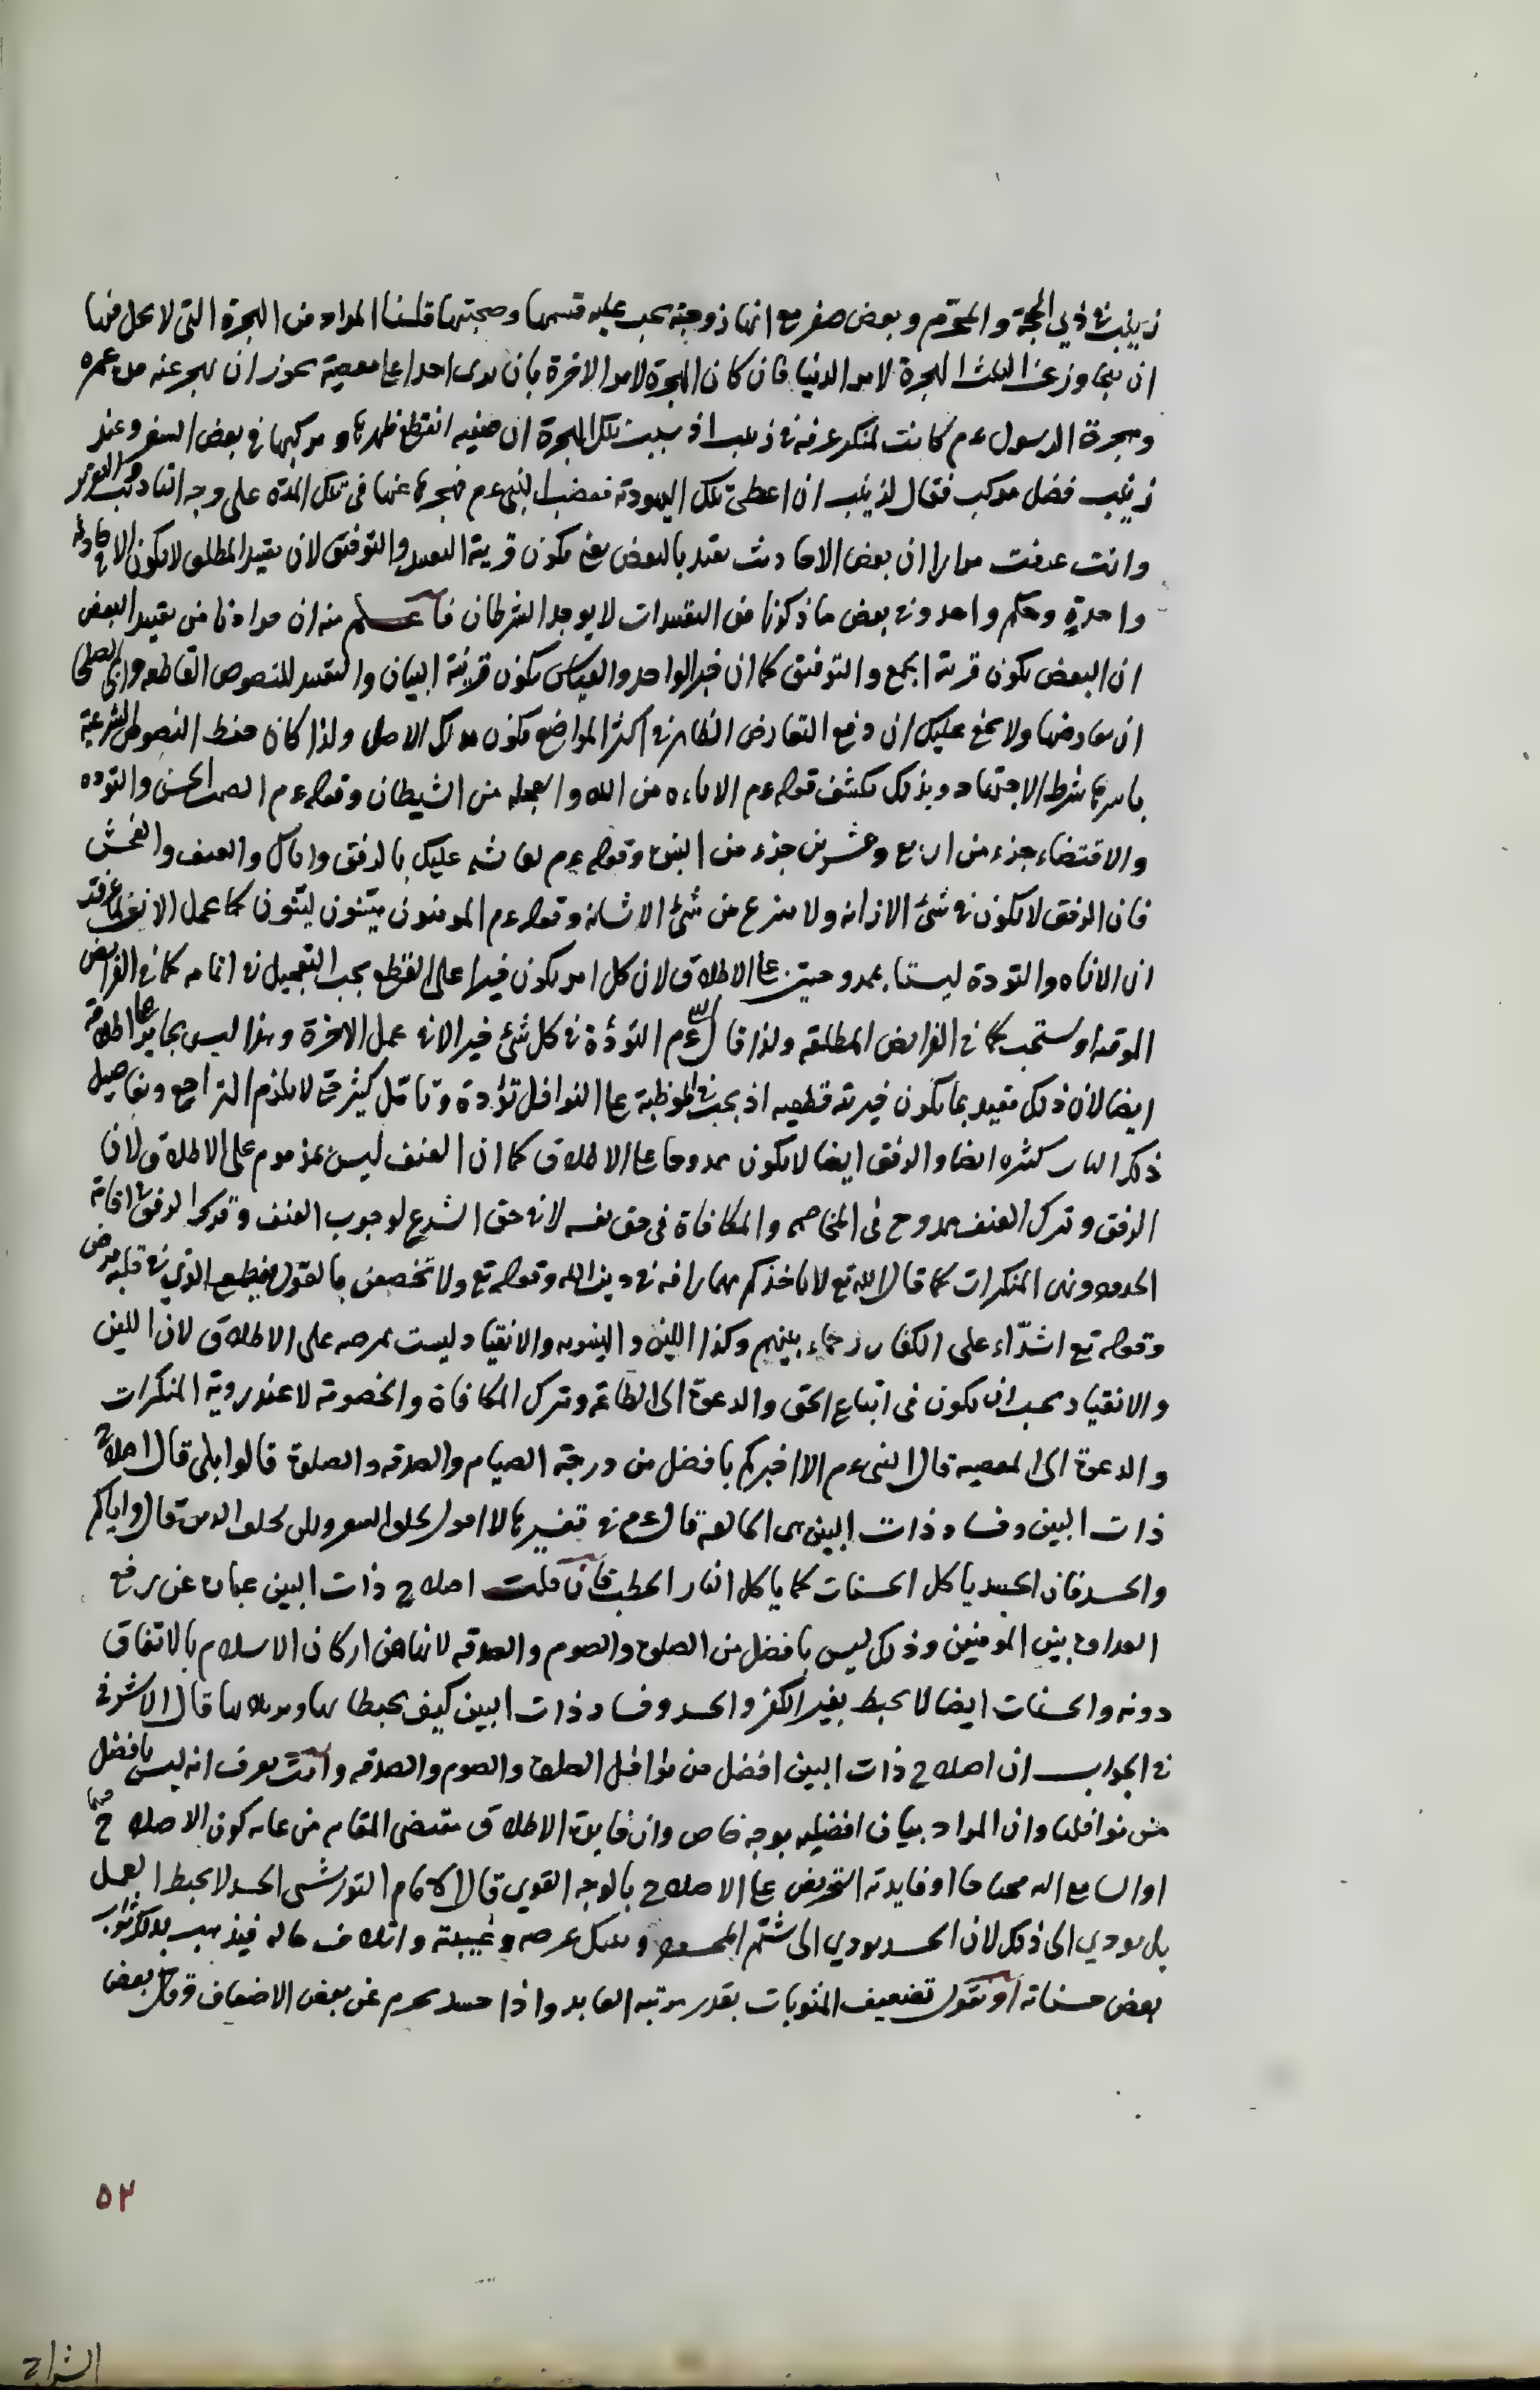 زينب في ذي الحجة والمحرم وبعض صفر مع انها زوجته يجب عليه قسمها وصحبتها قلنا المراد من الهجرة التي لا يحل فيها
ان يتجاوز عن الثلث الهجرة لامر الدنيا فان كان الهجرة لامر الاخرة بان يرى احدا على معصية يجوز ان يهجر عنه مدة عمره
وهجرة الرسول عم كانت لمنكر عرفه في زينب اذ سبب تلك الهجرة ان صفيه انقطع ظهرها ومركبها في بعض السفر وعند
زينب فضل مركب فقال لزينب ان اعطي تلك اليهودية فغضب النبي عم فهجرها عنها في تلك المدة على وجه التاديب والتعزير
وانت عرفت مرارا ان بعض الاحاديث يقيد بالبعض يعني يكون قرينة التقييد والتوفيق لان تقييد المطلق لا يكون الا في حادثة
واحدة وحكم واحد وفي بعض ما ذكرنا من التقييدات لا يوجد الشرطان فاعلم منه ان مرادنا من تقييد البعض
ان البعض يكون قرينة الجمع والتوفيق كما ان خبر الواحد والقياس يكون قرينة البيان والتقييد للنصوص القاطعة
ان يعارضها ولا يخفى عليك ان دفع التعارض الظاهر في اكثر المواضع يكون بذلك الاصل ولذا كان حفظ النصوص الشرعية
باسرها شرط الاجتهاد وبذلك يكشف قوله عم الاناءة من الله والعجلة من الشيطان وقوله عم السمت الحسن والتوده
والاقتصاد جزء من اربع وعشرين جزء من النبوة وقوله عم لعائشه عليك بالرفق واياك والعنف والفحش
فان الرفق لا يكون في شئ الا زانه ولا ينزع من شئ الا شانه وقوله عم المومنون هينون لينون كالجمل الانف
ان الاناه والتودة ليستا بممدوحتين على الاطلاق لان كل امر يكون خيرا على القطع يجب التعجيل في اتمامه كما في الفرائض
الموقتة او يستحب كما في الفرائض المطلقه ولذا قال عم التؤدة في كل شئ خير الا في عمل الاخرة وهذا ليس بجائز على اطلاقه
ايضا لان ذلك مقيد بما يكون خيريته قطعيه اذ يجب في المواظبة على النوافل تؤدة وتامل كثير حتى لا يلزم التراجع وتفاصيل
ذلك كثيره ايضا والرفق ايضا لا يكون ممدوحا على الاطلاق كما ان العنف ليس بمذموم على الاطلاق لان
الرفق وترك العنف ممدوح في المخاصمه والمكافاة في حق نفسه لا في حق الشرع لوجوب العنف وترك الرفق في اقامة
الحدود ونهي المنكرات كما قال الله تع لا ياخذكم بهما رافه في دين الله وقوله تع ولا تخضعن بالقول فيطمع الذي في قلبه مرض
وقوله تع اشداء على الكفار رحماء بينهم وكذا اللين والهينونه والانقياد ليست بمرضيه على الاطلاق لان اللين
والانقياد يجب ان يكون في اتباع الحق والدعوة الى الطاعة وترك المكافاة والخصومة لا عند روية المنكرات
والدعوة الى المعصيه قال النبي عم الا اخبركم بافضل من درجة الصيام والصدقه والصلوة قالوا بلى قال اصلاح
ذات البين وفساد ذات البين هي الحالقة قال عم في تفسيرها لا اقول يحلق الشعر ولكن يحلق الدين وقال اياكم
والحسد فان الحسد ياكل الحسنات كما ياكل النار الحطب فان قلت اصلاح ذات البين عبارة عن رفع
العداوة بين المومنين وذلك ليس بافضل من الصلوة والصوم والصدقه لانها من اركان الاسلام بالاتفاق
دونه والحسنات ايضا لا يحبط بغير الكفر والحسد وفساد ذات البين كيف يحبطانها ويزيلانها قال الاشرف
في الجواب ان اصلاح ذات البين افضل من نوافل الصلوة والصوم والصدقه وانت تعرف انه ليس بافضل
من نوافلها وان المراد بيان افضليه بوجه خاص وان فايدة الاطلاق مقتضى المقام من غايه كون الاصلاح مهما
او السامع اليه محتاجا او فايدته التحريض على الاصلاح بالوجه القوي قال الامام التوربشتي الحسد لا يحبط العمل
بل يودي الى ذلك لان الحسد يودي الى شتم المحسود وهتك عرضه وغيبته واتلاف ماله فيذهب بذلك ثواب
بعض حسناته او نقول تضعيف المثوبات بقدر مرتبه العابد واذا حسد يحرم عن بعض الاضعاف وقال بعض
٥٢
الشراح